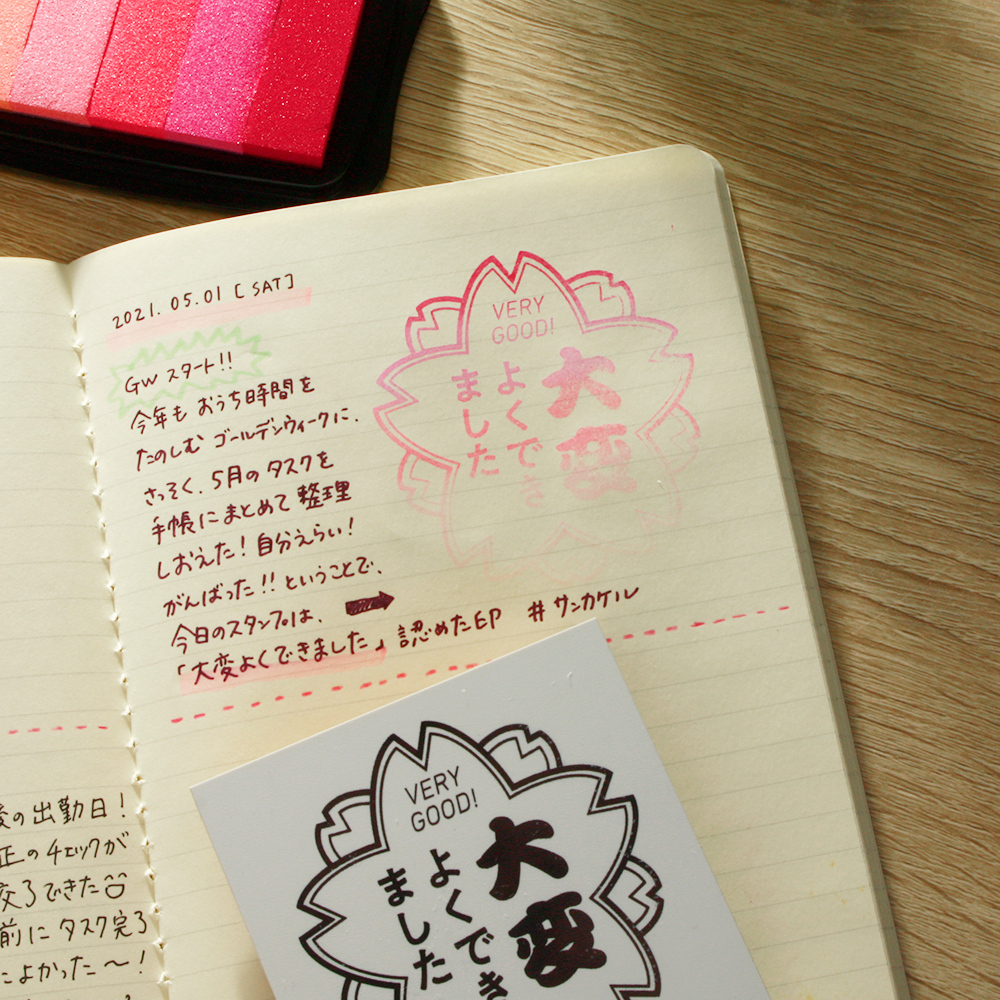 2021.05.01 [SAT]
GW スタート!!
今年も おうち時間を
たのしむ ゴールデンウィークに.
さっそく、5月のタスクを
手帳にまとめて 整理
しおえた! 自分えらい!
がんばった!! ということで、
今日のスタンプは、
「大変よくできました」認めた印 #サンカケル
VERY
GOOD!
大変
よくでき
ました
の出勤日!
正のチェックが
できた
前に タスク完了
によかった〜!
VERY
GOOD!
大変
よくでき
ました